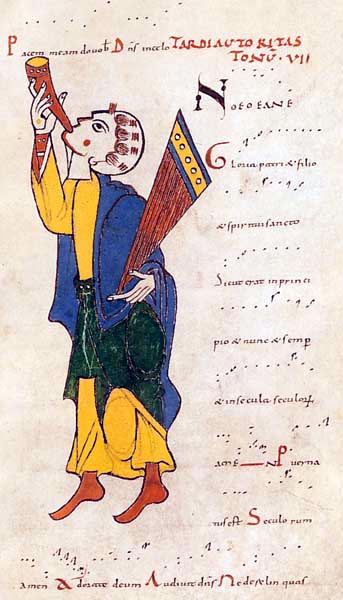 Pacem meam do uob Dns in celo TARDI AUTORITAS
TONU. VII
NOEOEANE
Gloria patri & filio
& spiritui sancto
Sicut erat in princi
pio & nunc & semp
& in secula seculoꝝ
amE N Puer na
tus est Seculorum
amen Adorate deum Audiuit dns Ne